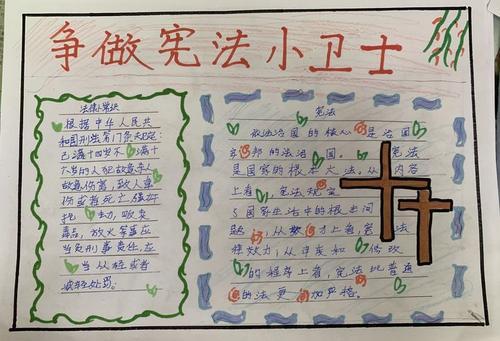 争做宪法小卫士
法律小常识
根据中华人民共
和国刑法第 条 规定:
已满十四岁不 满十
六岁的人犯故意杀人
故意伤害,致人重
伤或者死亡 强奸
抢 去力,贩卖
毒品,放火 罪应
当负刑事责任,应
当从轻或者
减轻处罚。
宪法
依法治国的核心 是治国
邦的法治 国。 宪法
是国家的根本大法。从 内容
上看 ,宪法规定
了国家生活中的根本问
题 ,从 才上看,
律效力;从 和 修改
的程序上看,宪法比普通
的法更 加严格。